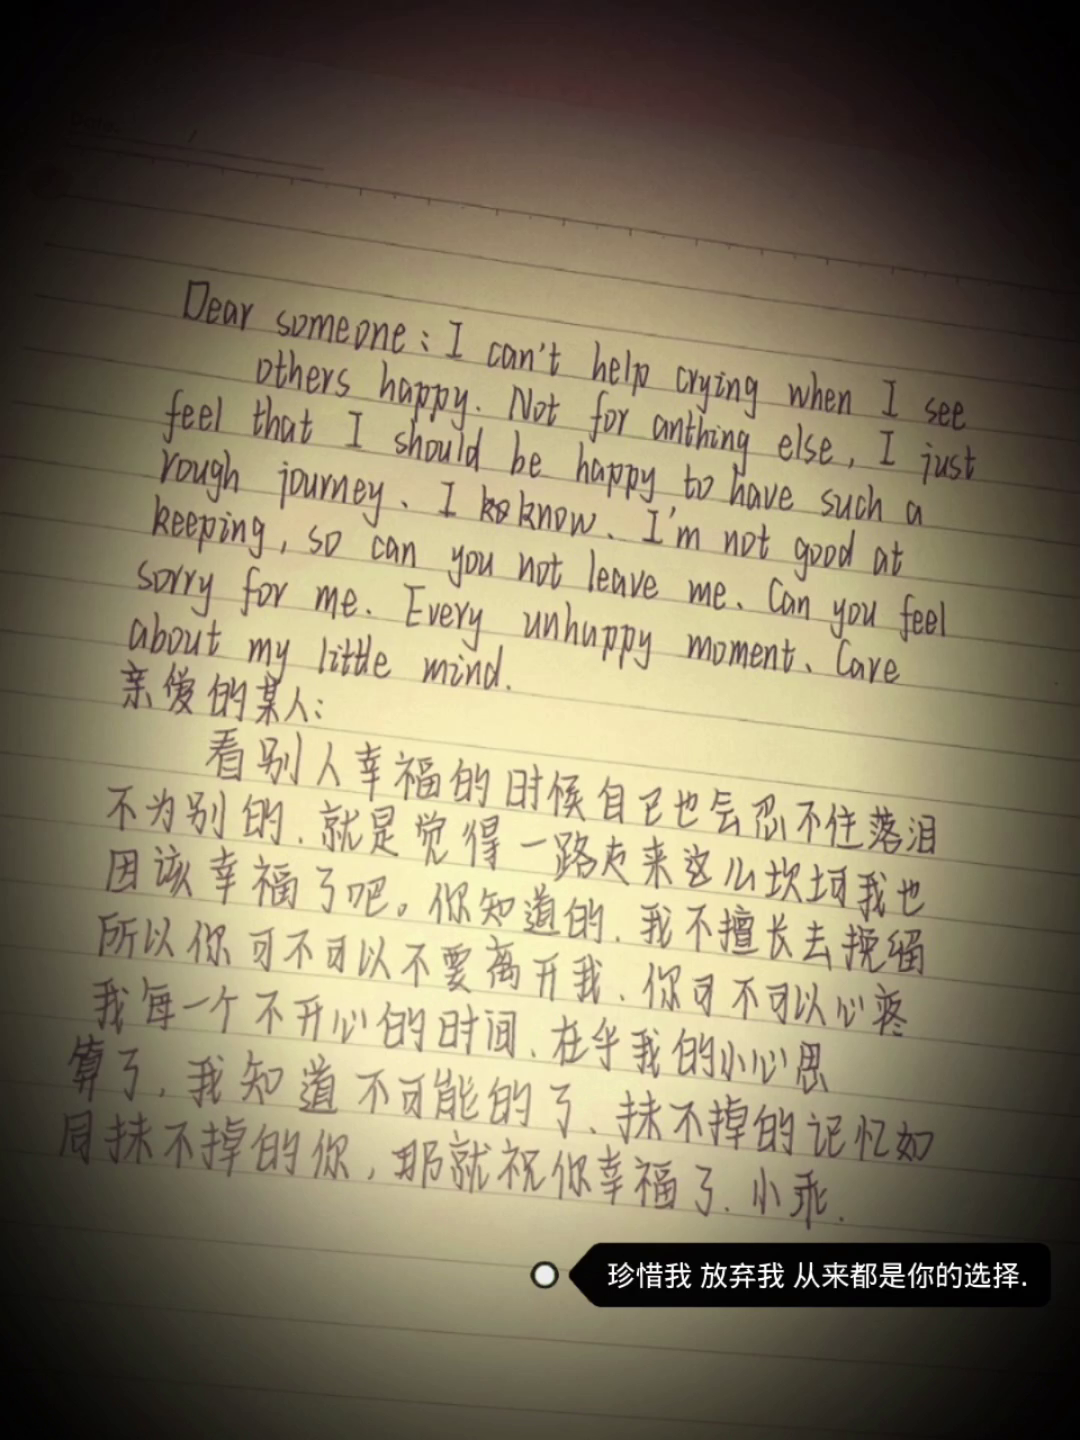 Date. /
Dear someone: I can't help crying when I see
others happy. Not for anthing else, I just
feel that I should be happy to have such a
rough journey. I ko know. I'm not good at
keeping, so can you not leave me. Can you feel
sorry for me. Every unhappy moment. Care
about my little mind.
亲爱的某人:
看别人幸福的时候自己也会忍不住落泪
不为别的.就是觉得一路走来这么坎坷我也
因该幸福了吧。你知道的.我不擅长去挽留
所以你可不可以不要离开我.你可不可以心疼
我每一个不开心的时间.在乎我的小心思
算了,我知道不可能的了.抹不掉的记忆如
同抹不掉的你,那就祝你幸福了.小乖.
珍惜我 放弃我 从来都是你的选择.